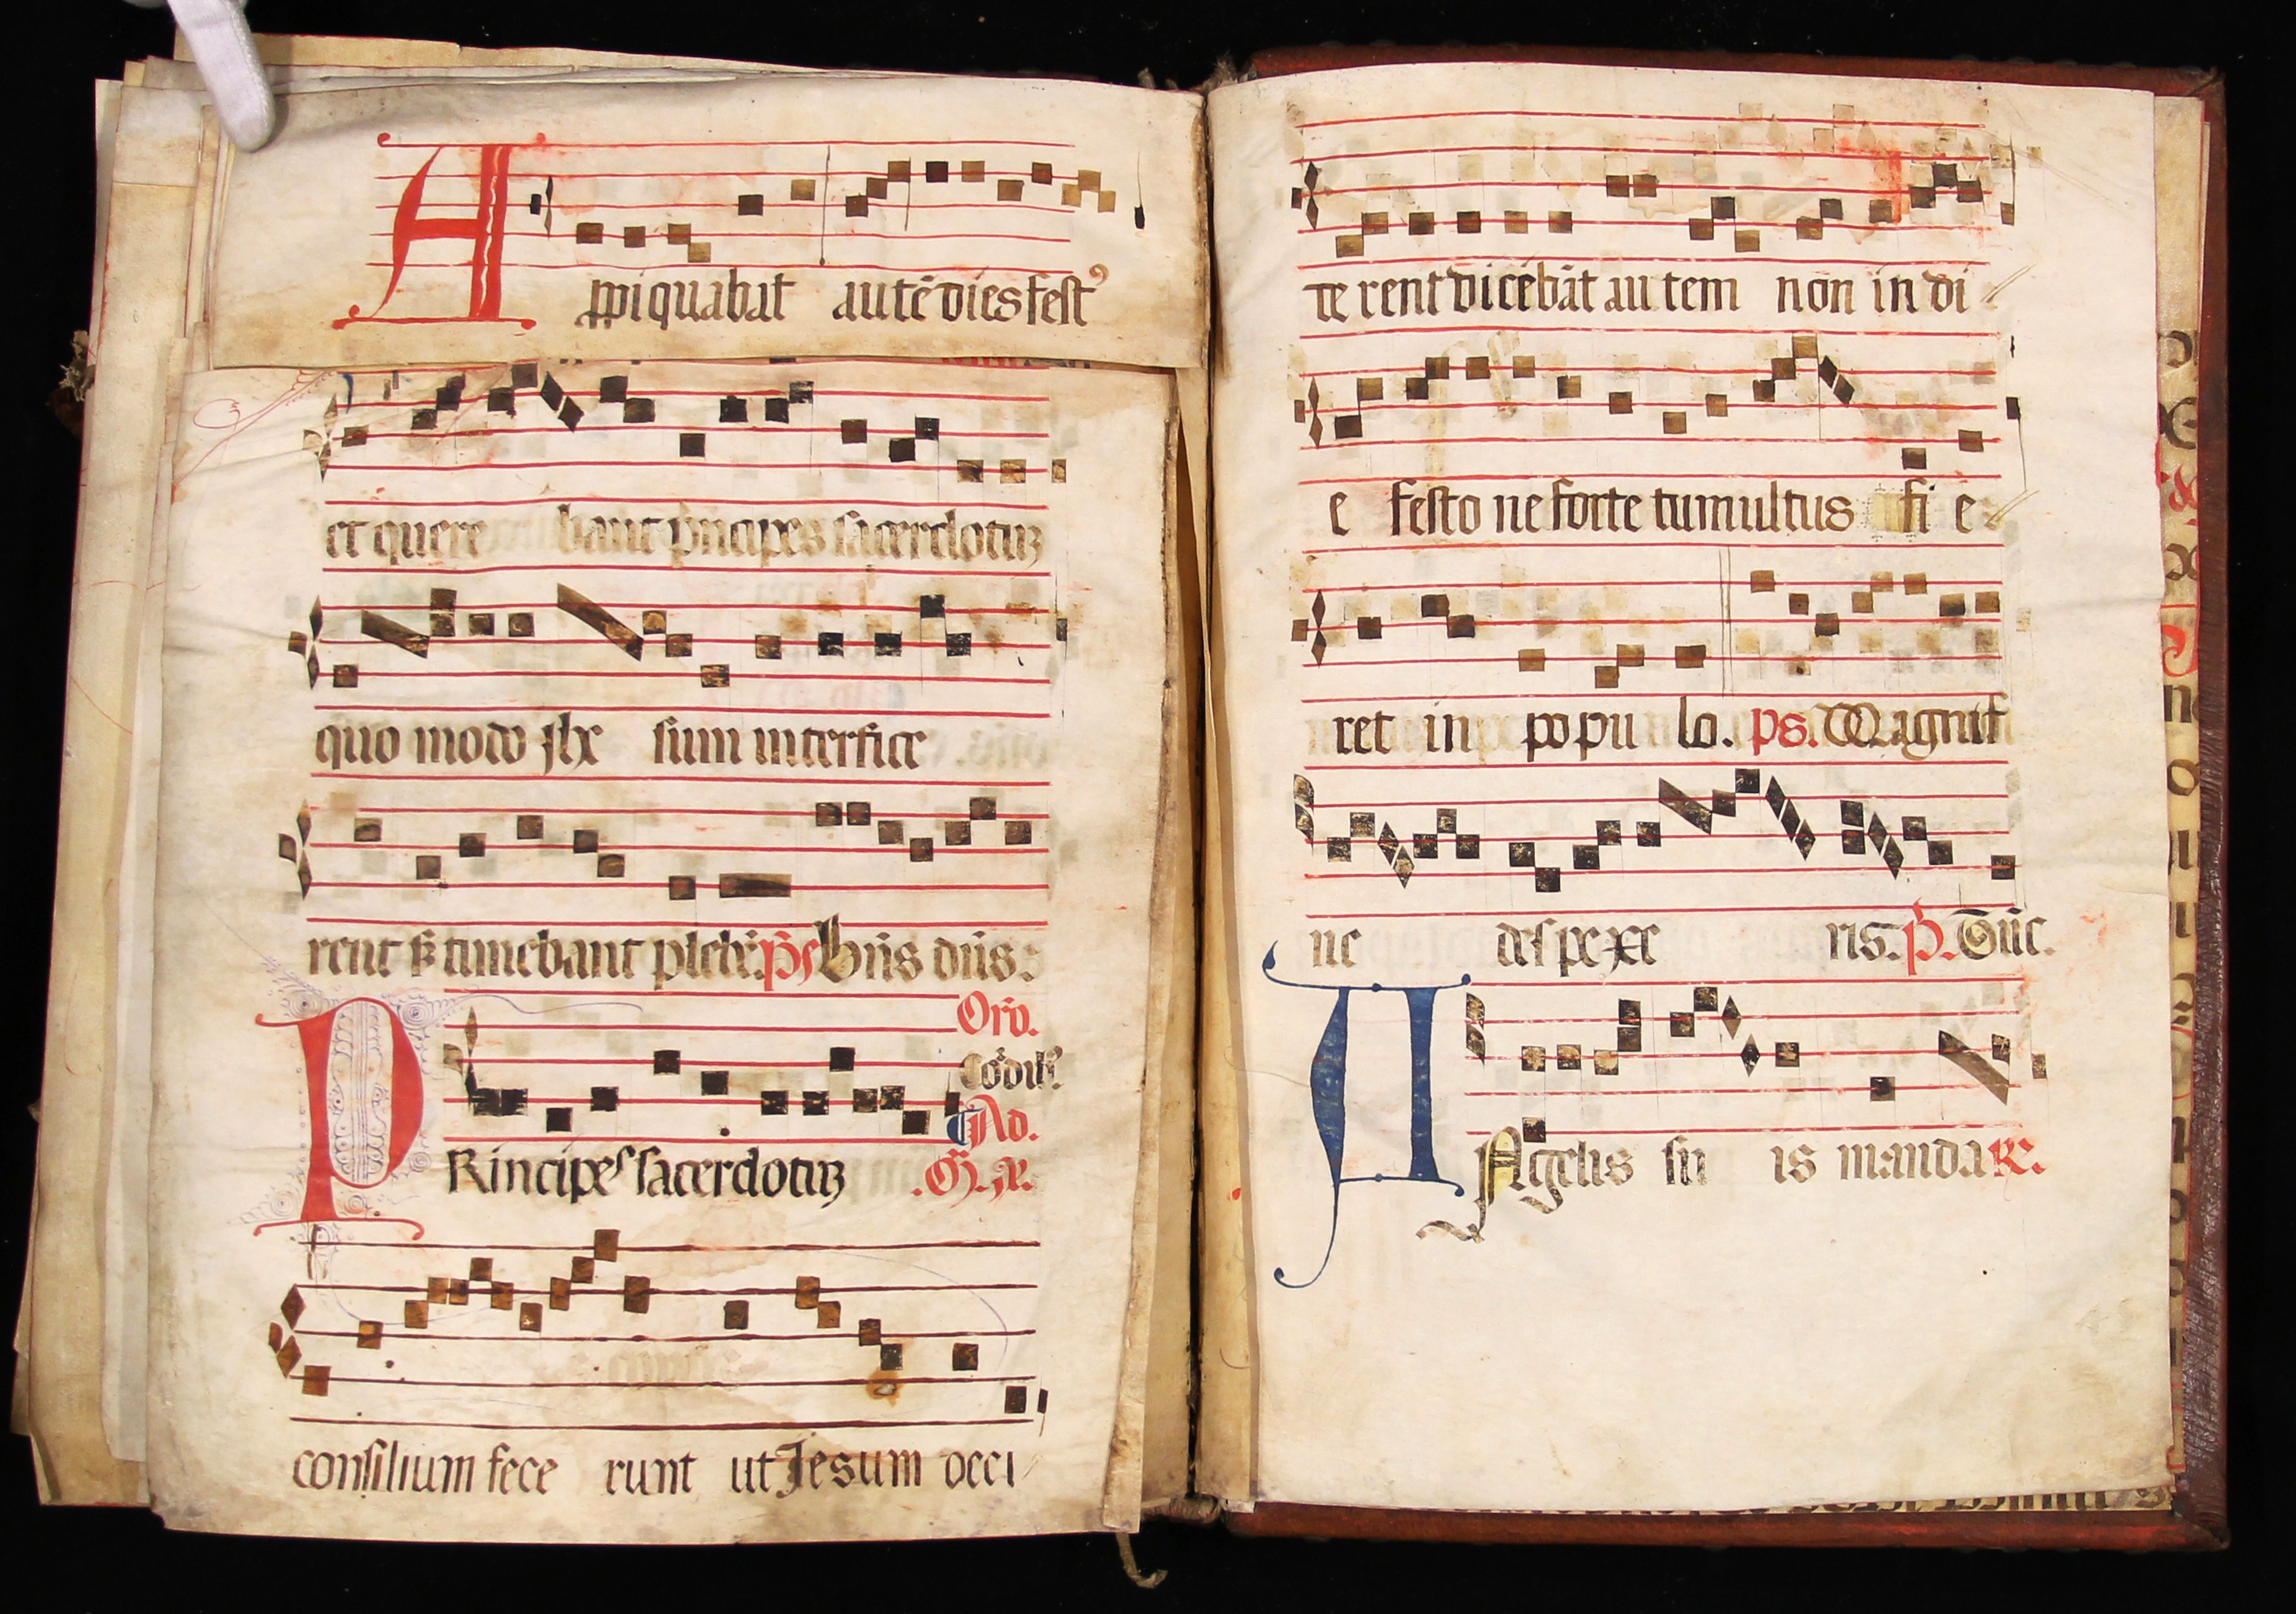 A ppiquabat autē dies fest⁹
et querebant p̄ncipes sacerdotuꝫ
quo modo jhx sum interfice
rent s̄ timebant plebē. Ps̄ Bn̄s dn̄s.
Orō.
Ad.
P Rincipes sacerdotuꝫ .M. ꝶ.
consilium fece runt ut Jesum occi
te rent dicebāt au tem non in di
e festo ne forte tumultus fi e
ret in po pu lo. ps. Magnif
ne des pexe ris. P̄. Tūc.
A Ngelis su is manda re.